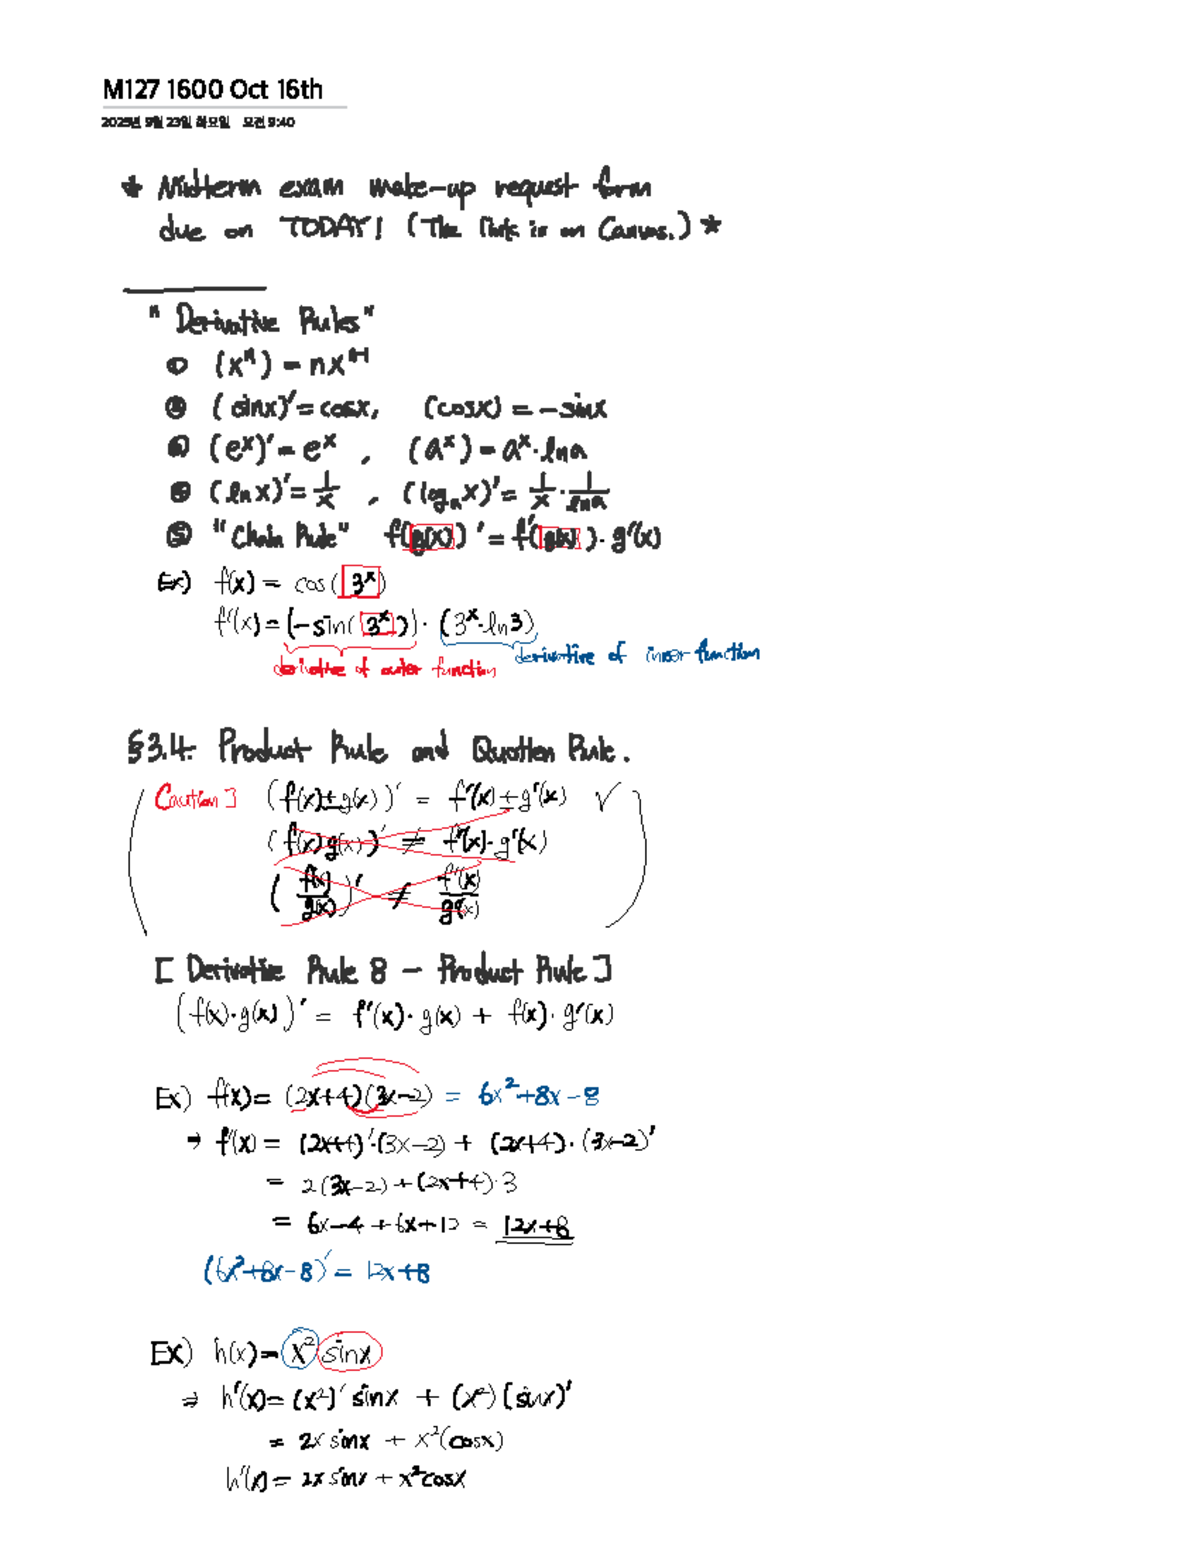 M127 1600 Oct 16th
2025년 9월 23일 화요일 오전 9:40
* Midterm exam make-up request form
due on TODAY! (The link is on Canvas.) *
" Derivative Rules"
① (xⁿ) = nxⁿ⁻¹
② (sinx)' = cosx, (cosx) = -sinx
③ (eˣ)' = eˣ , (aˣ) = aˣ·lna
④ (lnx)' = 1/x , (logₐx)' = 1/x · 1/lna
⑤ "Chain Rule" f(g(x))' = f'(g(x))·g'(x)
Ex) f(x) = cos(3ˣ)
f'(x) = (-sin(3ˣ))·(3ˣ·ln3)
derivative of outer function derivative of inner function
§3.4. Product Rule and Quotien Rule.
( Caution] (f(x)±g(x))' = f'(x)±g'(x) ✓ )
(f(x)g(x))' ≠ f'(x)·g'(x)
(f(x)/g(x))' ≠ f'(x)/g'(x)
[ Derivative Rule 8 - Product Rule ]
(f(x)·g(x))' = f'(x)·g(x) + f(x)·g'(x)
Ex) f(x) = (2x+4)(3x-2) = 6x²+8x-8
→ f'(x) = (2x+4)'·(3x-2) + (2x+4)·(3x-2)'
= 2(3x-2)+(2x+4)·3
= 6x-4+6x+12 = 12x+8
(6x²+8x-8)' = 12x+8
Ex) h(x) = x² sinx
⇒ h'(x) = (x²)' sinx + (x²)(sinx)'
= 2x sinx + x²(cosx)
h'(x) = 2x sinx + x²cosx